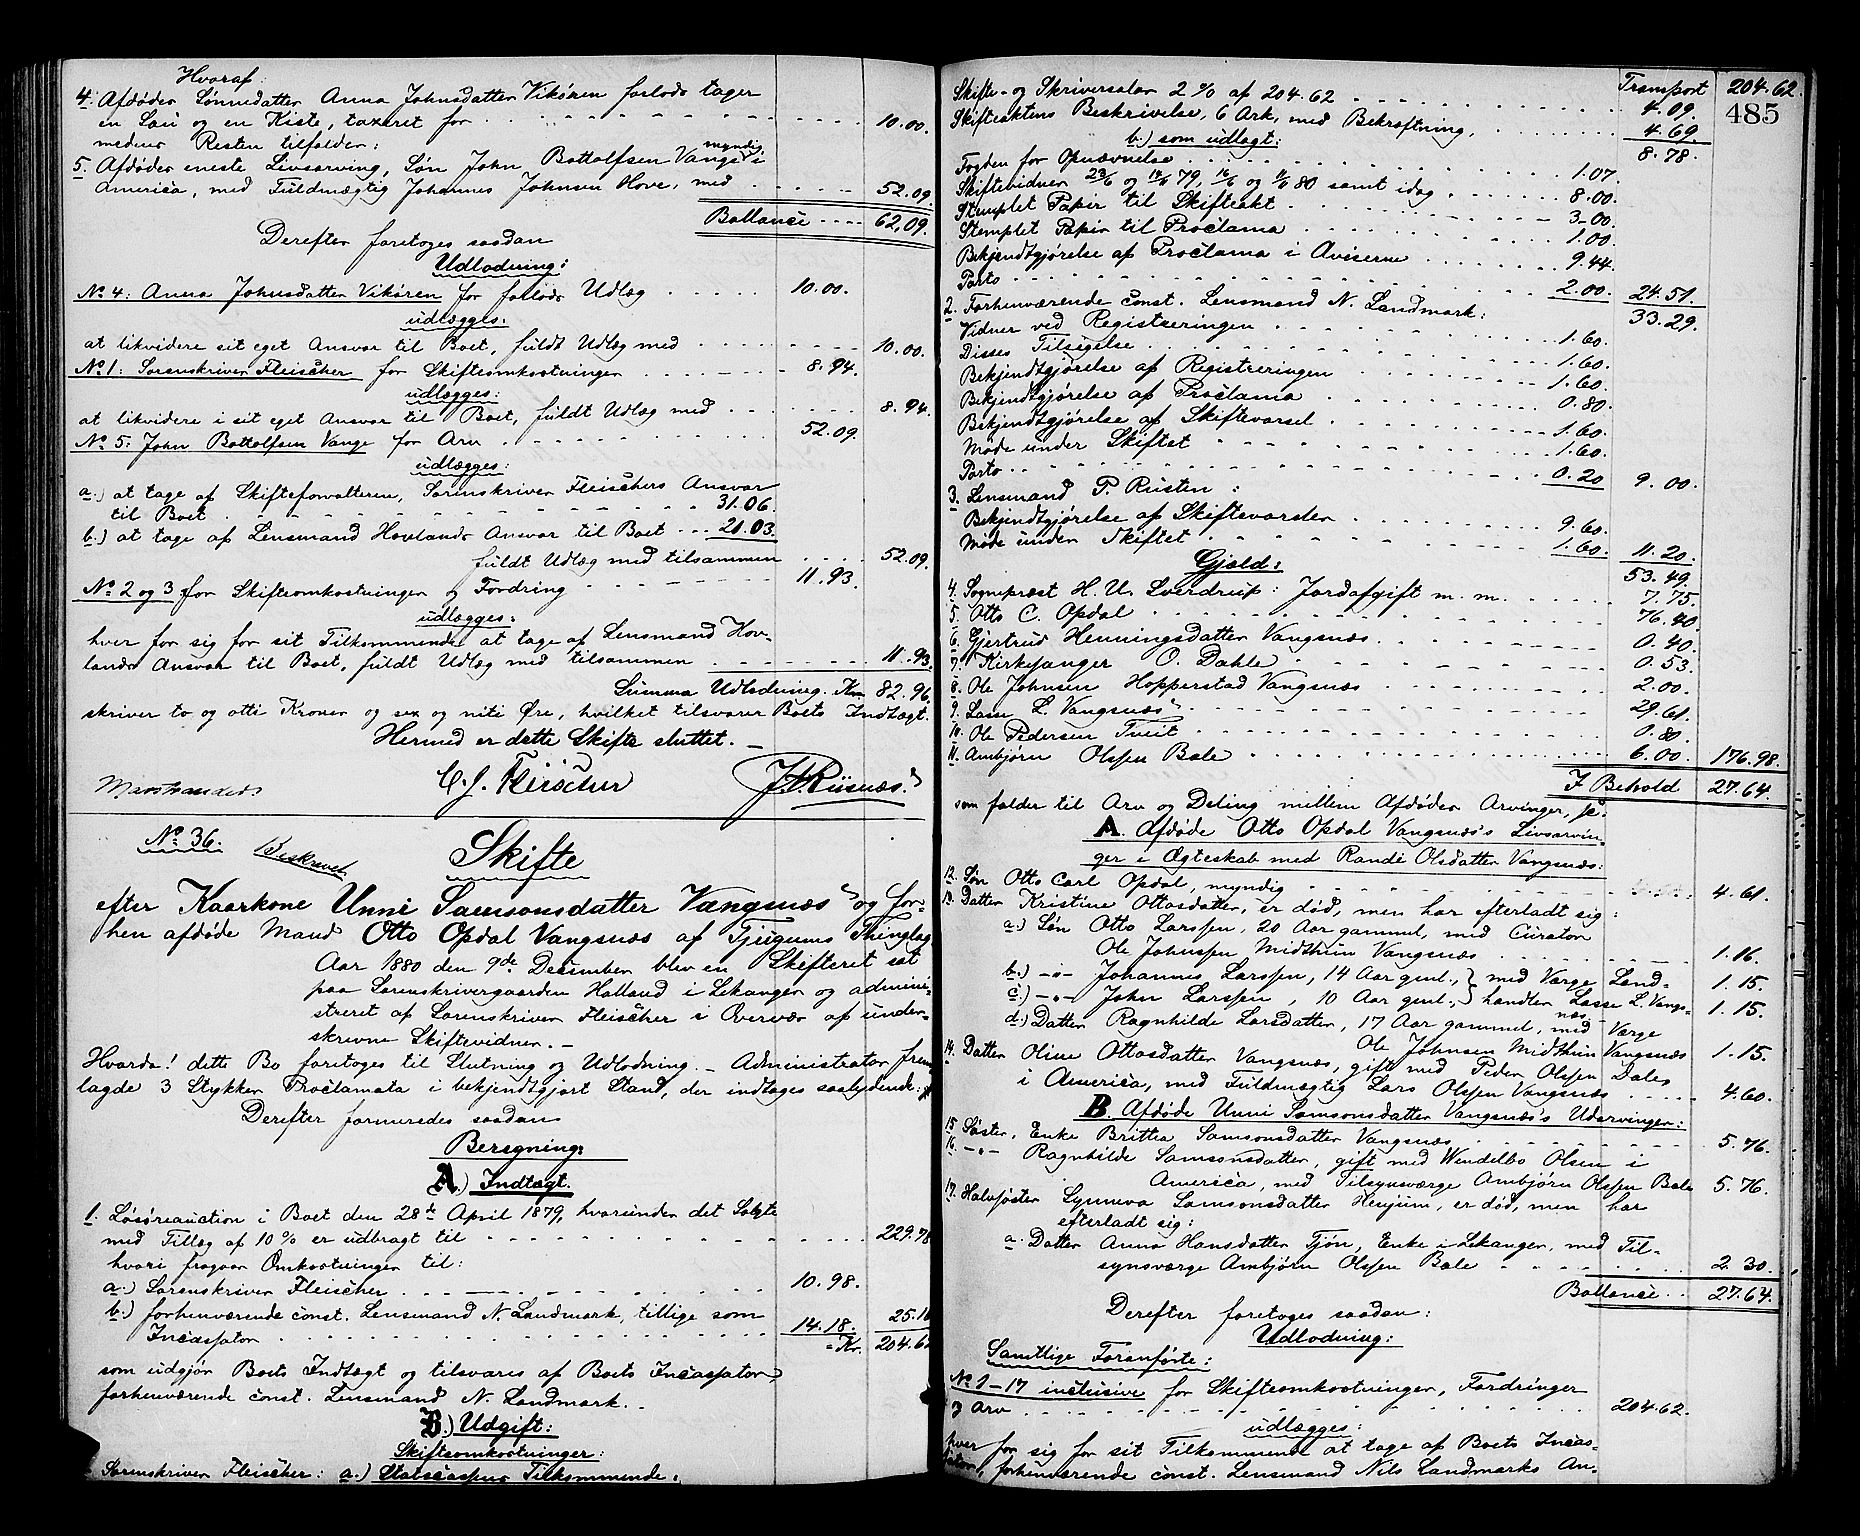 Hvoraf:
4. Afdødes Sønnedatter Anna Johnsdatter Vikøren forlods tager
en Sau og en Kiste, taxeret for 10.00.
medens Resten tilfalder:
5. Afdødes eneste Livsarving, Søn John Bottolfsen Vange myndig i
America, med Fuldmægtig Johannes Johnsen Hove, med 52.09.
Ballance 62.09.
Derefter foretoges saadan
Udlodning:
No 4: Anna Johnsdatter Vikøren for forlods Udlæg 10.00.
udlægges:
at likvidere sit eget Ansvar til Boet, fuldt Udlæg med 10.00.
No 1: Sorenskriver Fleischer for Skifteomkostninger 8.94.
udlægges:
at likvidere i sit eget Ansvar til Boet, fuldt Udlæg med 8.94.
No 5: John Bottolfsen Vange for Arv 52.09.
udlægges:
a.) at tage af Skifteforvalteren, Sorenskriver Fleischers Ansvar
til Boet 31.06.
b.) at tage af Lensmand Hovlands Ansvar til Boet 21.03.
fuldt Udlæg med tilsammen 52.09.
No 2 og 3 for Skifteomkostninger og Fordring 11.93.
udlægges:
hver for sig for sit Tilkommende at tage af Lensmand Hov-
lands Ansvar til Boet, fuldt Udlæg med tilsammen 11.93.
Summa Udlodning. Kr. 82.96.
skriver to og otti Kroner og sex og niti Øre, hvilket tilsvarer Boets Indtægt.
Hermed er dette Skifte sluttet. —
C. J. Fleischer
No 36. Beskrevet
Skifte
efter Kaarkone Unni Samsonsdatter Vangsnæs og for-
hen afdøde Mand Otto Opdal Vangsnæs af Tjugums Thinglag
Aar 1880 den 9de December blev en Skifteret sat
paa Sorenskrivergaarden Halland i Lekanger og admini-
streret af Sorenskriver Fleischer i Overvær af under-
skrevne Skiftevidner. —
Hvorda! dette Bo foretoges til Slutning og Udlodning. — Administrator frem
lagde 3 Stykker Proclamata i bekjendtgjort Stand, der indtages saalydende:
Derefter formeredes saadan
Beregning:
A.) Indtægt.
1. Løsøreauction i Boet den 28de April 1879, hvorunder det Solgte
med Tillæg af 10% er udbragt til 229.78
hvori fragaar Omkostninger til:
a.) Sorenskriver Fleischer 10.98.
b.) forhenværende const. Lensmand N. Landmark, tillige som
Incassator 14.18. 25.16
= Kr. 204.62
som udgjør Boets Indtægt og tilsvares af Boets Incassator
forhenværende const. Lensmand N. Landmark. —
B.) Udgift:
Skifteomkostninger:
Sorenskriver Fleischer: a.) Statscassens Tilkommende:
485
Transport 204.62
Skifte- og Skriversalær 2 % af 204.62 4.09.
Skifteaktens Beskrivelse, 6 Ark, med Bekræftning, 4.69.
b.) som udlagt: 8.78.
Fogden for Opnævnelse 1.07.
Skiftevidner 23/6 og 19/8 79, 16/6 og 11/8 80 samt idag 8.00.
Stemplet Papir til Skifteakt 3.00.
Stemplet Papir til Proclama 1.00.
Bekjendtgjørelse af Proclama i Aviserne 9.44.
Porto 2.00. 24.51.
2. Forhenværende const. Lensmand N. Landmark: 33.29.
Vidner ved Registreringen 1.60.
Disses Tilsigelse 1.60.
Bekjendtgjørelse af Registreringen 1.60.
Bekjendtgjørelse af Proclama 0.80.
Bekjendtgjørelse af Skiftevarsel 1.60.
Møde under Skiftet 1.60.
Porto 0.20 9.00.
3. Lensmand P. Rusten:
Bekjendtgjørelse af Skiftevarsler 9.60.
Møde under Skiftet 1.60. 11.20.
Gjæld: 53.49.
4. Sognepræst H. U. Sverdrup: Jordafgift m. m. 7.75.
5. Otto C. Opdal 76.40.
6. Gjertrud Henningsdatter Vangsnæs 0.40.
7. Kirkesanger O. Dahle 0.53.
8. Ole Johnsen Hopperstad Vangsnæs 2.00.
9. Lasse L. Vangsnæs 29.61.
10. Ole Pedersen Tveit 0.80.
11. Ambjørn Olssen Bale 6.00. 176.98.
I Behold 27.64.
som falder til Arv og Deling mellem Afdødes Arvinger, ɔ:
A. Afdøde Otto Opdal Vangsnæs's Livsarvin-
ger i Ægteskab med Randi Olsdatter Vangsnæs:
12. Søn Otto Carl Opdal, myndig 4.61.
13. Datter Kristine Ottosdatter, er død, men har efterladt sig:
a.) Søn Otto Larssen, 20 Aar gammel, med Curator
Ole Johnssen Midthun Vangsnæs 1.16.
b.) -"- Johannes Larssen, 14 Aar gml., } med Værge Land- 1.15.
c.) -"- John Larssen, 10 Aar gml., } handler Lasse L. Vangs- 1.15.
næs
d.) Datter Ragnhilde Larsdatter, 17 Aar gammel, med Værge
Ole Johnsen Midthun Vangsnæs 1.15.
14. Datter Oline Ottosdatter Vangsnæs, gift med Peder Olssen Dales
i America, med Fuldmægtig Lars Olssen Vangsnæs 4.60.
B. Afdøde Unni Samsonsdatter Vangsnæs's Udarvinger:
15. Søster, Enke Brittha Samsonsdatter Vangsnæs 5.76.
16. -"- Ragnhilde Samsonsdatter, gift med Wendelbo Olsen i
America, med Tilsynsværge Ambjørn Olssen Bale 5.76.
17. Halvsøster Synneva Samsonsdatter Henjum, er død, men har
efterladt sig:
a. Datter Anna Hansdatter Tjøn, Enke i Lekanger, med Til-
synsværge Ambjørn Olssen Bale 2.30.
Ballance 27.64.
Derefter foretoges saadan:
Udlodning:
Samtlige Foranførte:
No 1–17 inclusive for Skifteomkostninger, Fordringer
og Arv 204.62.
udlægges:
hver for sig for sit Tilkommende at tage af Boets Incas-
sators, forhenværende const. Lensmand Nils Landmarks An-